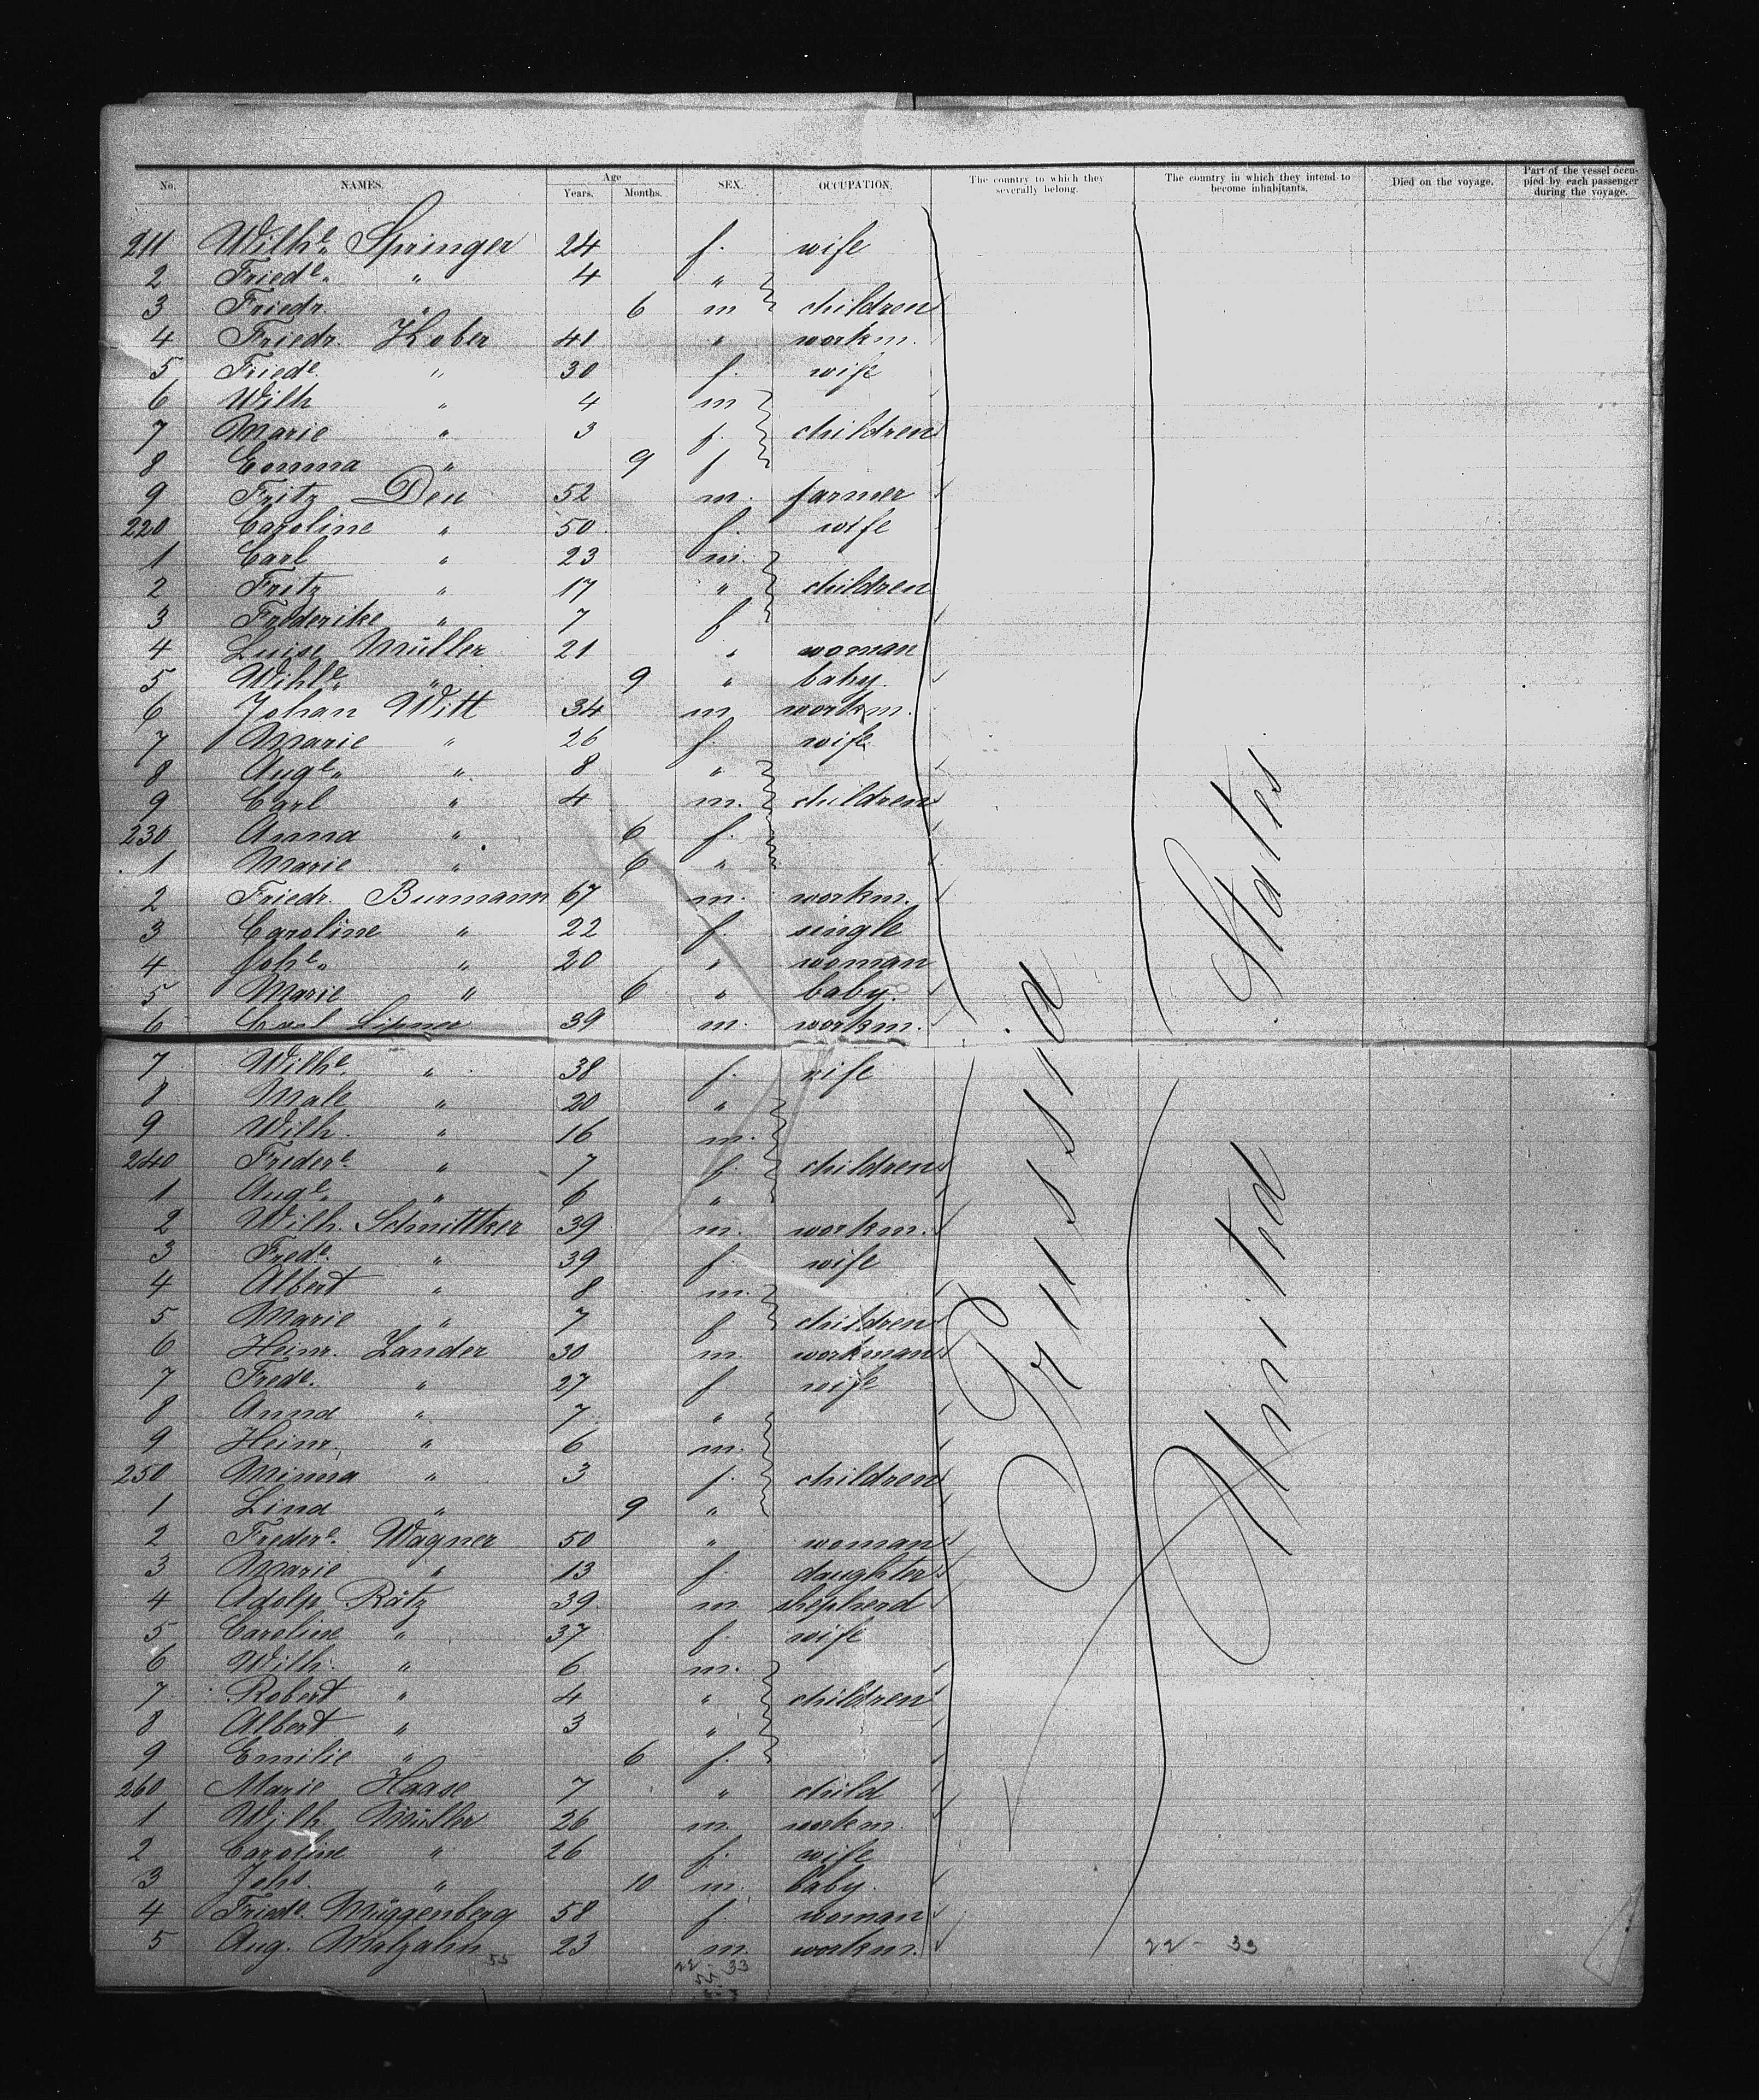 No. NAMES. Age Years. Months. SEX. OCCUPATION. The country to which they severally belong. The country in which they intend to become inhabitants. Died on the voyage. Part of the vessel occupied by each passenger during the voyage.
211 Wilhe. Springer 24 f. wife
2 Friede. " 4 "
3 Friedr. " 6 m children
4 Friedr. Kober 41 " workm.
5 Friede. " 30 f. wife
6 Wilh " 4 m
7 Marie " 3 f. children
8 Emma " 9 f
9 Fritz Deu 52 m. farmer
220 Caroline " 50 f. wife
1 Carl " 23 m.
2 Fritz " 17 " children
3 Frederike " 7 f
4 Luise Müller 21 " woman
5 Wihle. " 9 " baby.
6 Johan Witt 34 m workm.
7 Marie " 26 f. wife
8 Auge. " 8 "
9 Carl " 4 m. children
230 Anna " 6 f.
1 Marie " 6 "
2 Friedr. Burmann 67 m. workm.
3 Caroline " 22 f. single
4 Johe. " 20 " woman
5 Marie " 6 " baby.
6 Carl 39 m. workm.
7 Wilhe. " 38 f. wife
8 Male " 20 "
9 Wilh. " 16 m.
240 Fredere. " 7 f. children
1 Auge. " 6 "
2 Wilh. Schnittker 39 m. workm.
3 Frede. " 39 f. wife
4 Albert " 8 m.
5 Marie " 7 f children
6 Heinr. Zander 30 m. workman
7 Frede. " 27 f. wife
8 Anna " 7 "
9 Heinr. " 6 m.
250 Minna " 3 f. children
1 Lina " 9 "
2 Fredere. Wagner 50 " woman
3 Marie " 13 f. daughter
4 Adolp Rätz 39 m shepherd
5 Caroline " 37 f. wife
6 Wilh. " 6 m.
7 Robert " 4 " children
8 Albert " 3 "
9 Emilie " 6 f.
260 Marie Haase 7 " child
1 Wilh Müller 26 m. workm.
2 Caroline " 26 f. wife
3 Johs. " 10 m. baby.
4 Friede. Müggenberg 58 f. woman
5 Aug. Malzahn 23 m. workm.
55 22 - 33 22 - 33
55
Prussia
United States